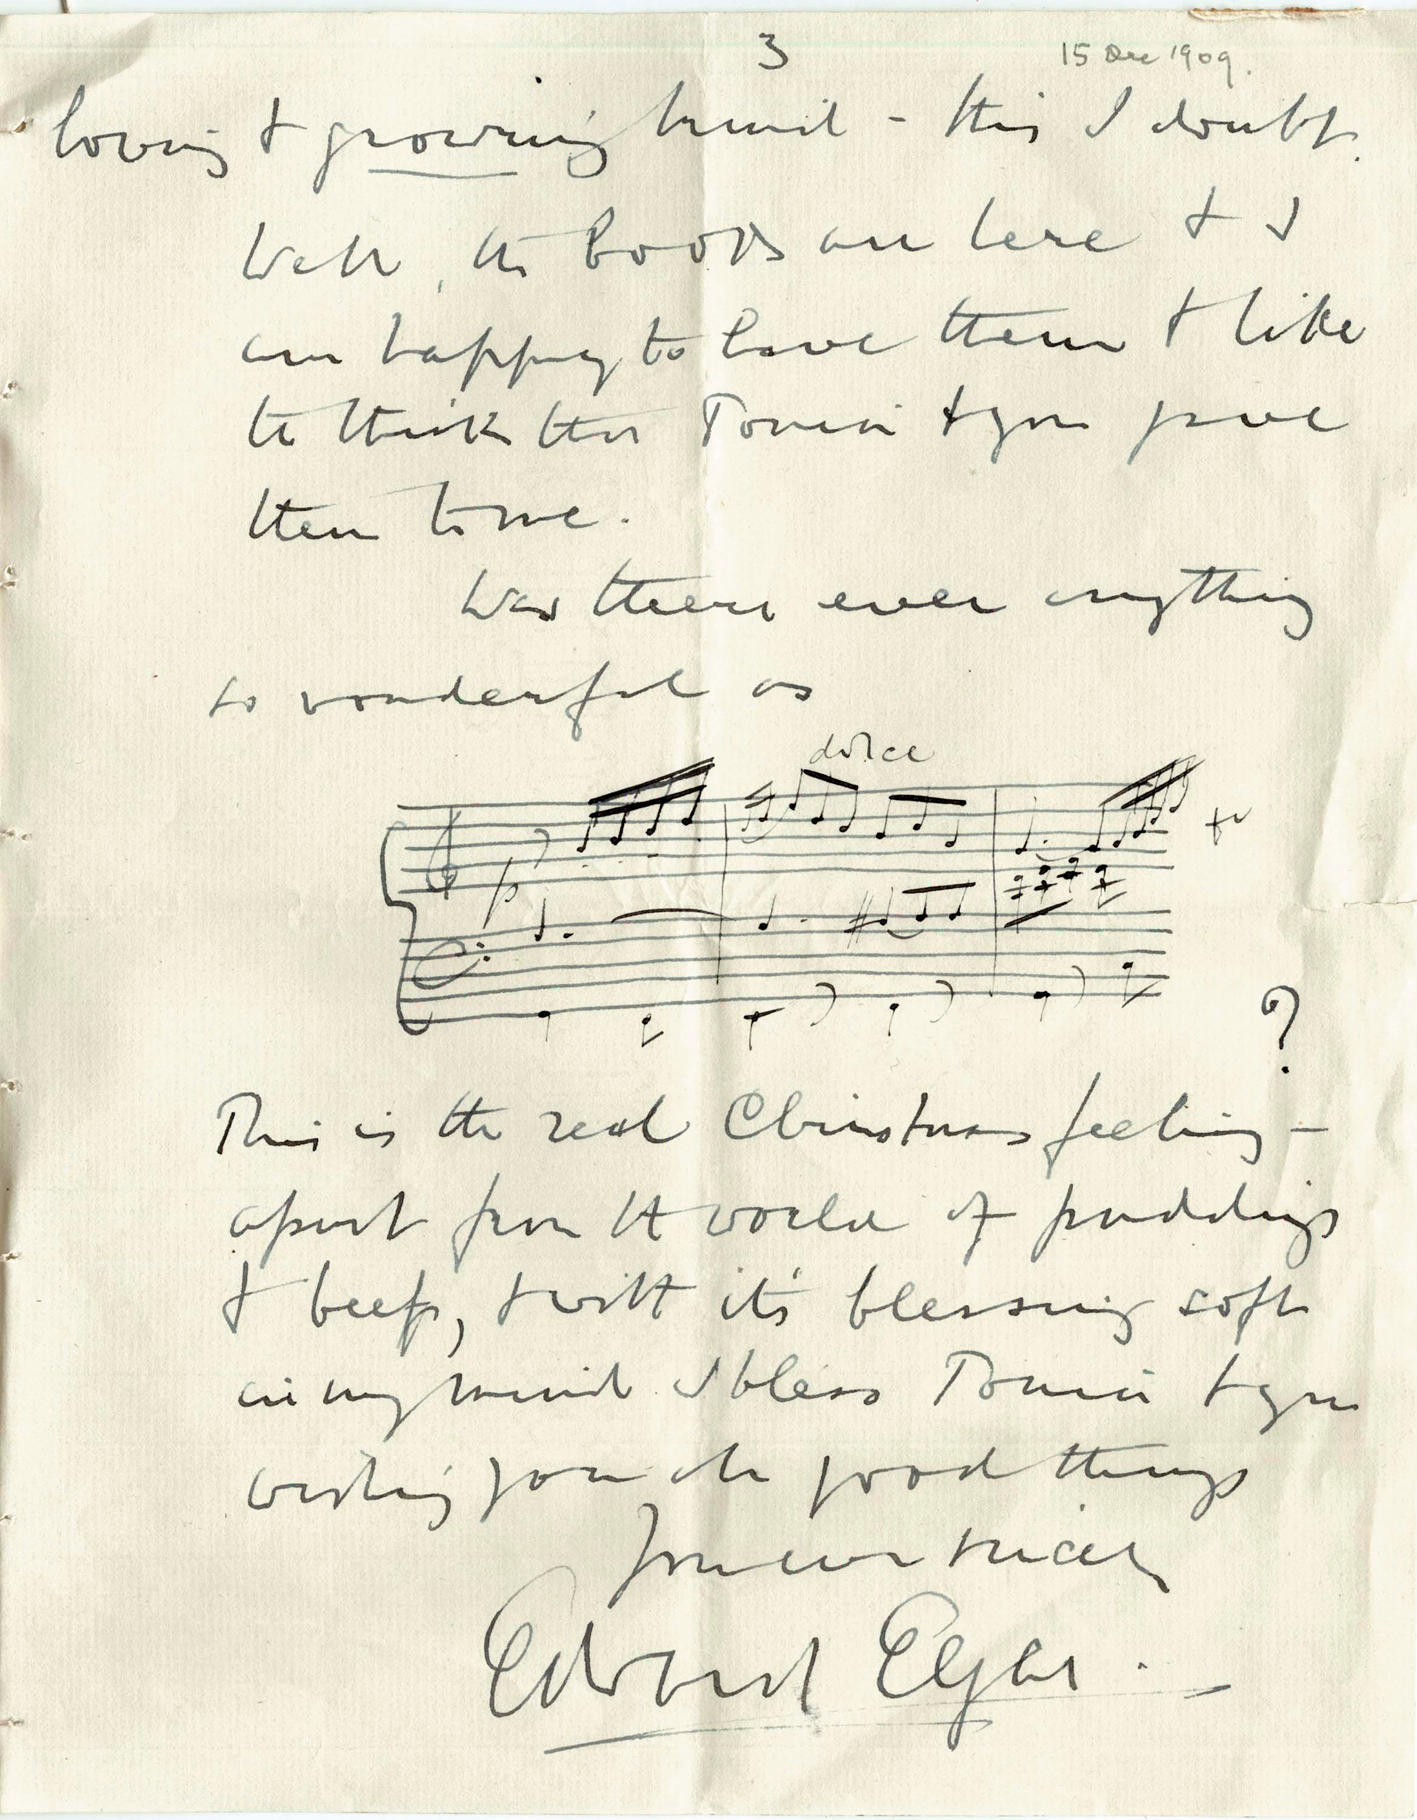 3
15 Dec 1909.
loving & growing mind - this I doubt.
Well, the books are here & I
am happy to have them & like
to think that Tonia & you gave
them to me.
Was there ever anything
so wonderful as
dolce
p
&c
?
This is the real Christmas feeling -
apart from the world of puddings
& beef, & with it's blessing soft
in my mind I bless Tonia & you
wishing you all good things
Your ever
Edward Elgar.